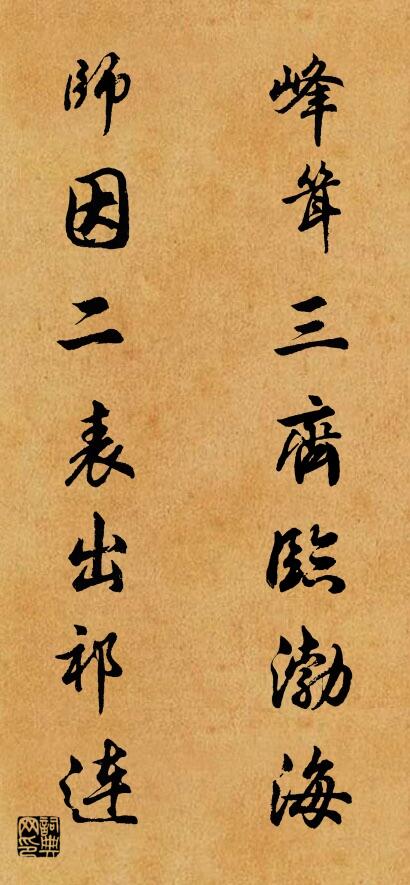 峰聳三齊臨渤海
師因二表出祁連